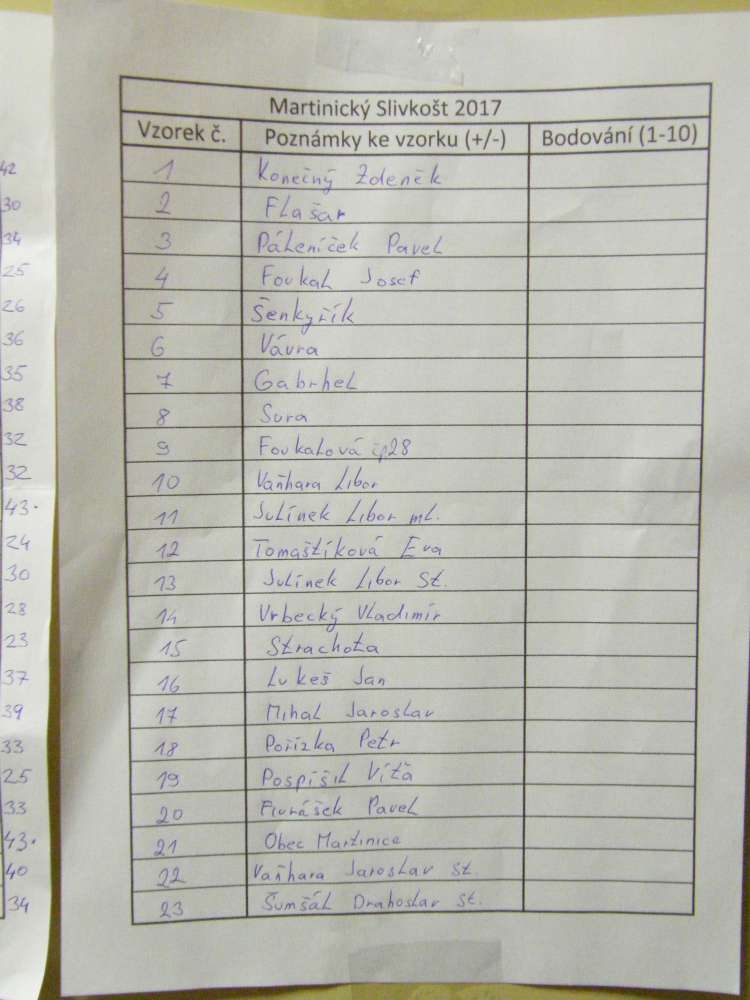 Martinický Slivkošt 2017
Vzorek č. Poznámky ke vzorku (+/-) Bodování (1-10)
1 Konečný Zdeněk
2 Flašar
3 Páleníček Pavel
4 Foukal Josef
5 Šenkyřík
6 Vávra
7 Gabrhel
8 Sura
9 Foukalová čp28
10 Vaňhara Libor
11 Julínek Libor ml.
12 Tomaštíková Eva
13 Julínek Libor St.
14 Vrbecký Vladimír
15 Strachota
16 Lukeš Jan
17 Mihal Jaroslav
18 Pořízka Petr
19 Pospíšil Víťa
20 Pavel
21 Obec Martinice
22 Vaňhara Jaroslav St.
23 Šumšál Drahoslav St.
42
30
34
25
26
36
35
38
32
32
43.
24
30
28
23
37
39
33
25
33
43.
40
34